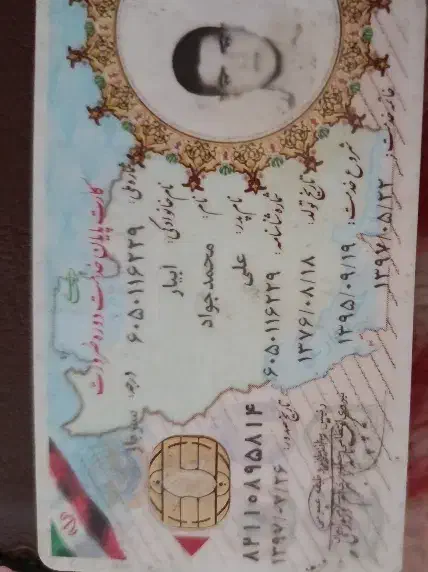 کارت پایان خدمت دوره ضرورت
شماره ملی: ۶۰۵۰۱۱۶۲۲۹
نام خانوادگی: ایبار
نام: محمدجواد
نام پدر: علی
شماره شناسنامه: ۶۰۵۰۱۱۶۲۲۹
تاریخ تولد: ۱۳۷۶/۰۸/۱۸
شروع خدمت: ۱۳۹۵/۰۹/۱۹
۱۳۹۷/۰۵/۲۲
درجه:
تاریخ صدور: ۱۳۹۷/۰۷/۲۶
۸۲۱۱۰۸۹۵۸۱۴